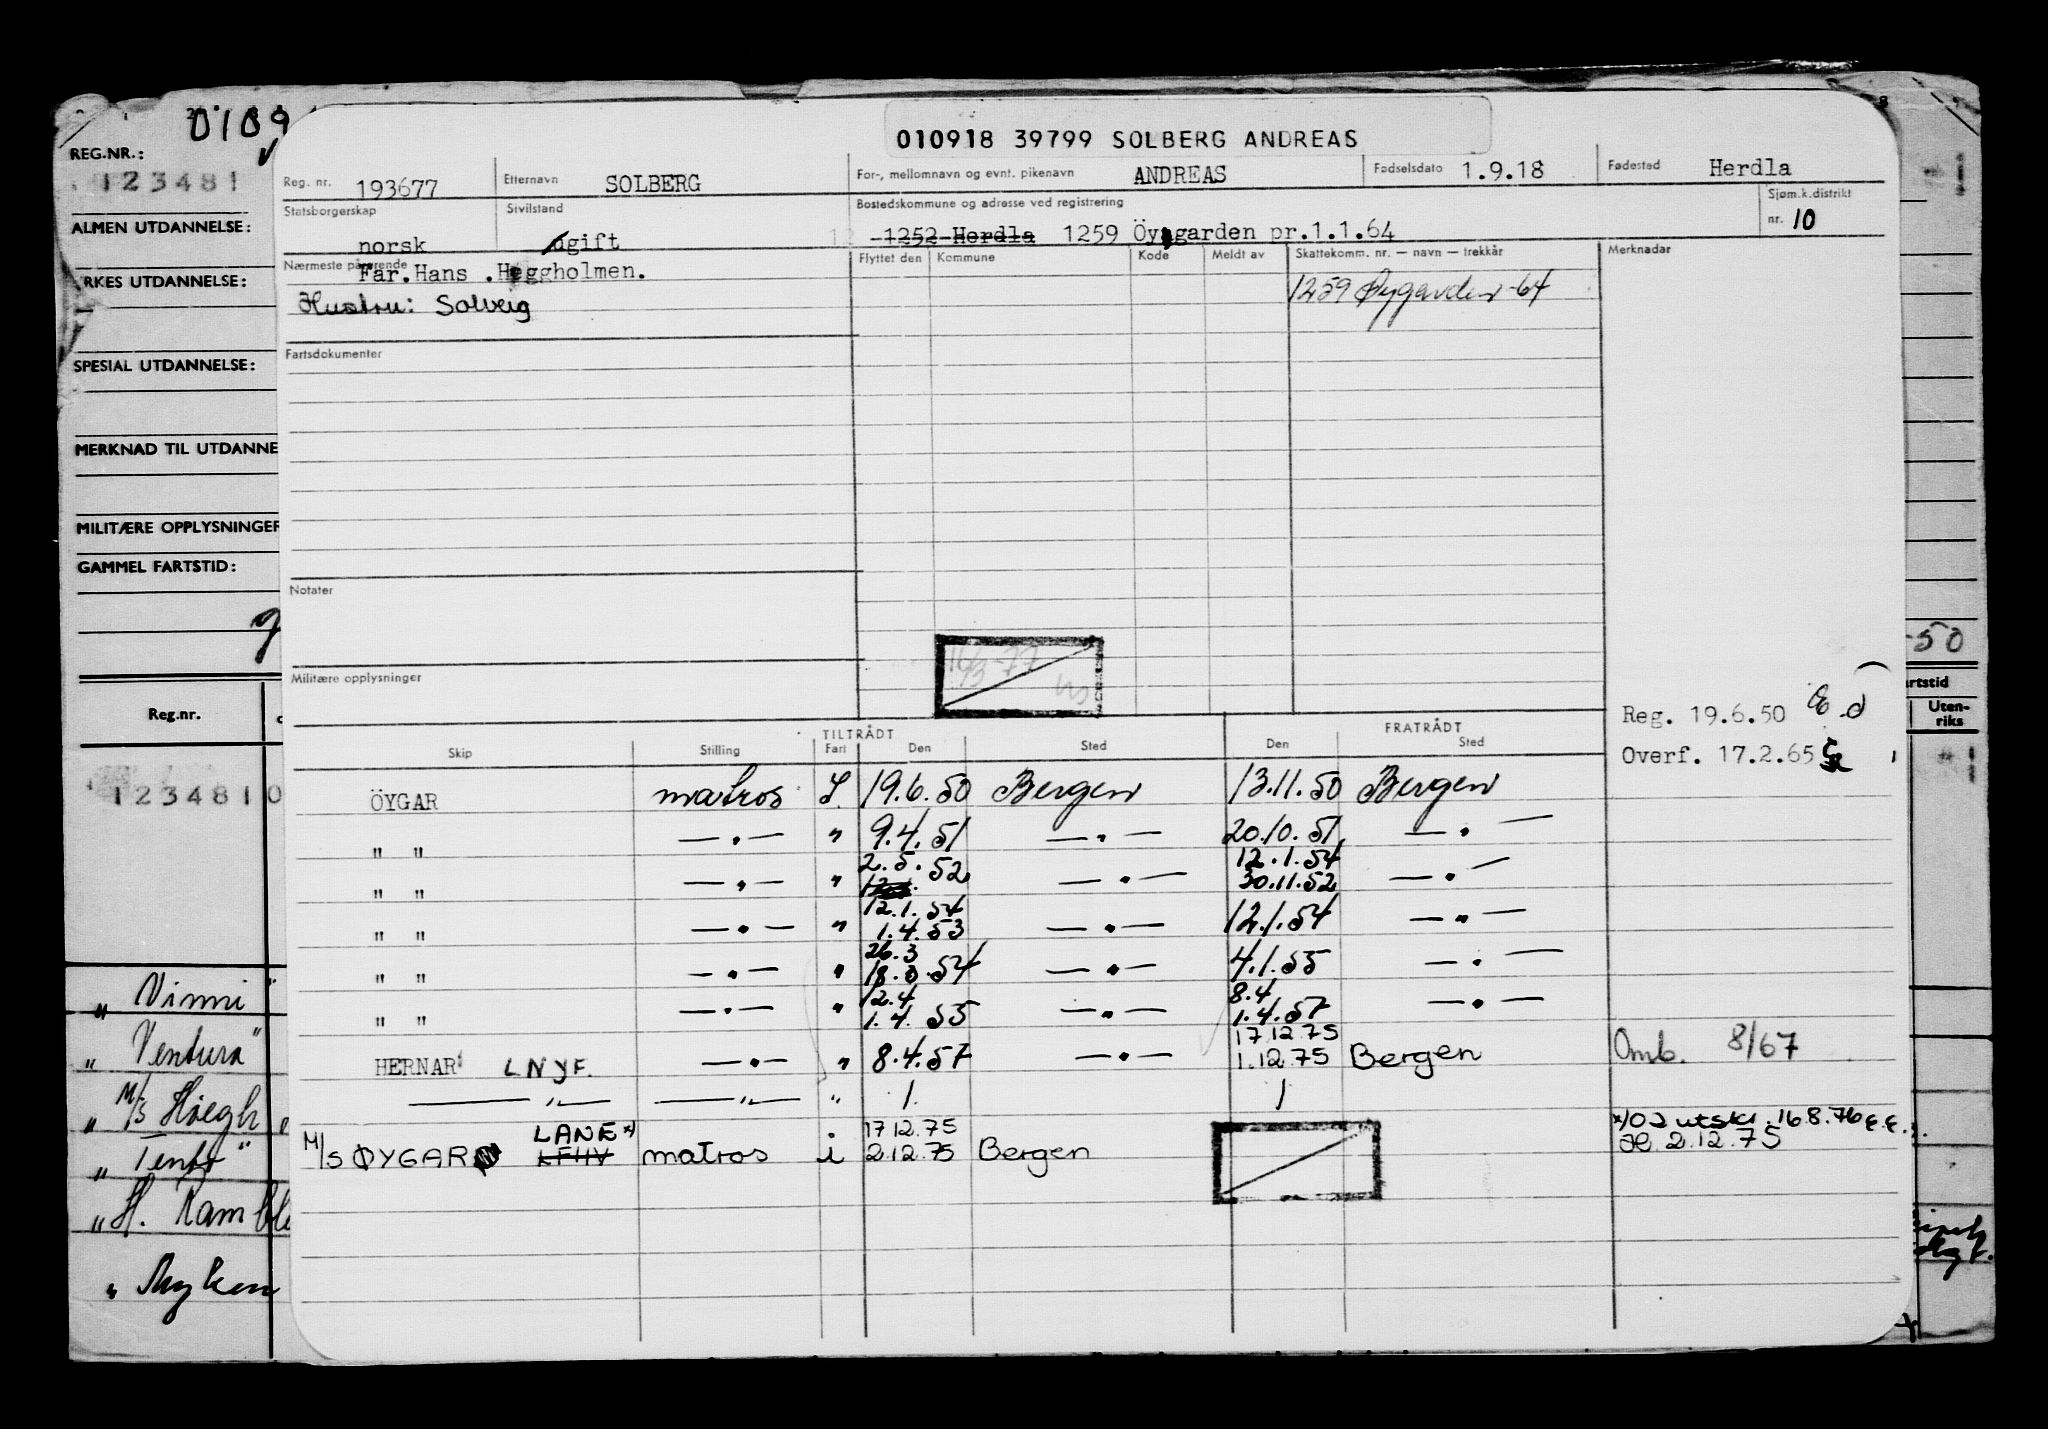 010918 39799 SOLBERG ANDREAS
0109
REG.NR.:
123481
ALMEN UTDANNELSE:
RKES UTDANNELSE:
SPESIAL UTDANNELSE:
MERKNAD TIL UTDANNE
MILITÆRE OPPLYSNINGER
GAMMEL FARTSTID:
Reg.nr.
1234810
"Vimmi"
"Ventura"
" M/s Höegh
" Tento"
" H. Ramble
" Myken
Reg. nr. 193677 Etternavn SOLBERG For-, mellomnavn og evnt. pikenavn ANDREAS Fødselsdato 1.9.18 Fødested Herdla
Statsborgerskap Sivilstand Bostedskommune og adresse ved registrering Sjøm.k.distrikt
norsk gift 1252 Herdla 1259 Öygarden pr.1.1.64 nr. 10
Nærmeste pårørende Flyttet den Kommune Kode Meldt av Skattekomm. nr. — navn — trekkår Merknadar
Far. Hans . Heggholmen.
Hustru: Solveig 1259 Øygarden -64
Fartsdokumenter
Notater
Militære opplysninger
-50
Reg. 19.6.50
Overf. 17.2.65
artstid
Uten-
riks
TILTRÅDT FRATRÅDT
Skip Stilling Fart Den Sted Den Sted
ÖYGAR matros I. 19.6.50 Bergen 13.11.50 Bergen
" " — " — " 9.4.51 — " — 20.10.51 — " —
2.5.52 12.1.54
" " — " — " — " — 30.11.52 — " —
12.1.54
" " — " — " 1.4.53 — " — 12.1.54 — " —
26.3
" " — " — " 18.3.54 — " — 4.1.55 — " —
12.4 8.4
" " — " — " 1.4.55 — " — 1.4.57 — " —
17.12.75
HERNAR LNYF. — " — " 8.4.57 — " — 1.12.75 Bergen Omb. 8/67
— " — — " — " 1. 1
LANE x) 17.12.75 x) OJ utskr. 16.8.76 E.E.
M/S ØYGAR LFHV matros i 2.12.75 Bergen 2.12.75